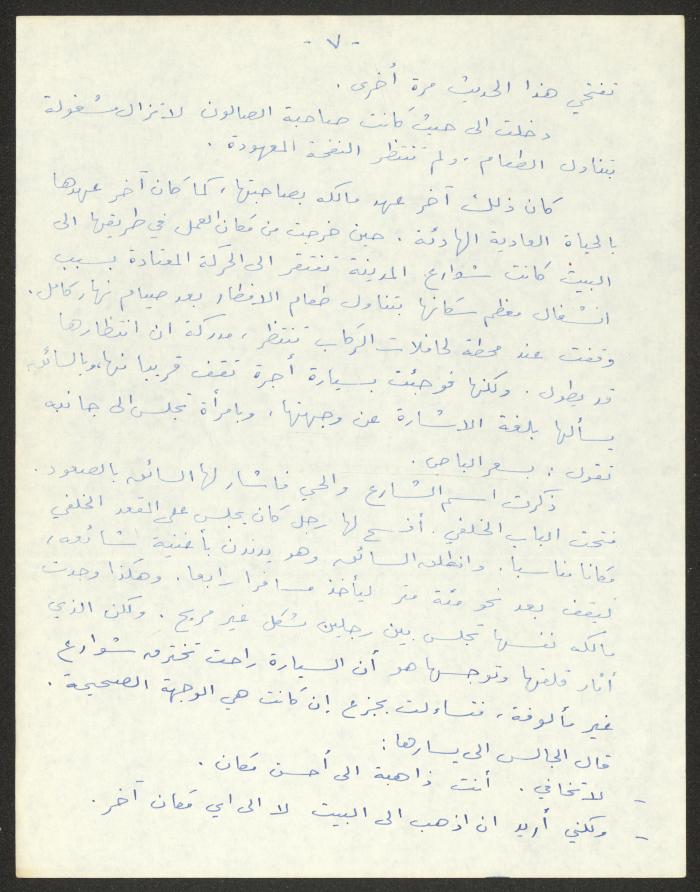 - ٧ -
تفتحي هذا الحديث مرة أخرى .
دخلت الى حيث كانت صاحبة الصالون لا تزال مشغولة
بتناول الطعام ، ولم تنتظر النفحة المعهودة .
كان ذلك آخر عهد مالكه بصاحبتها ، كما كان آخر عهدها
بالحياة العادية الهادئة . حين خرجت من مكان العمل في طريقها الى
البيت كانت شوارع المدينة تفتقر الى الحركة المعتادة بسبب
انشغال معظم سكانها بتناول طعام الافطار بعد صيام نهار كامل .
وقفت عند محطة لحافلات الركاب تنتظر ، مدركة ان انتظارها
قد يطول . ولكنها فوجئت بسيارة أجرة تقف قريبا منها ، وبالسائق
يسألها بلغة الاشارة عن وجهتها ، وبامرأة تجلس الى جانبه
تقول : بسعر الباص .
ذكرت اسم الشارع والحي فاشار لها السائق بالصعود .
فتحت الباب الخلفي . أفسح لها رجل كان يجلس على المقعد الخلفي
مكانا مناسبا . وانطلق السائق وهو يدندن بأغنية شائعة ،
ليقف بعد نحو مئة متر ليأخذ مسافرا رابعا . وهكذا وجدت
مالكه نفسها تجلس بين رجلين بشكل غير مريح . ولكن الذي
أثار قلقها وتوجسها هو أن السيارة راحت تخترق شوارع
غير مألوفة ، فتساءلت بجزع إن كانت هي الوجهة الصحيحة .
قال الجالس الى يسارها :
- لا تخافي . أنت ذاهبة الى أحسن مكان .
- ولكني أريد ان اذهب الى البيت لا الى اي مكان آخر .